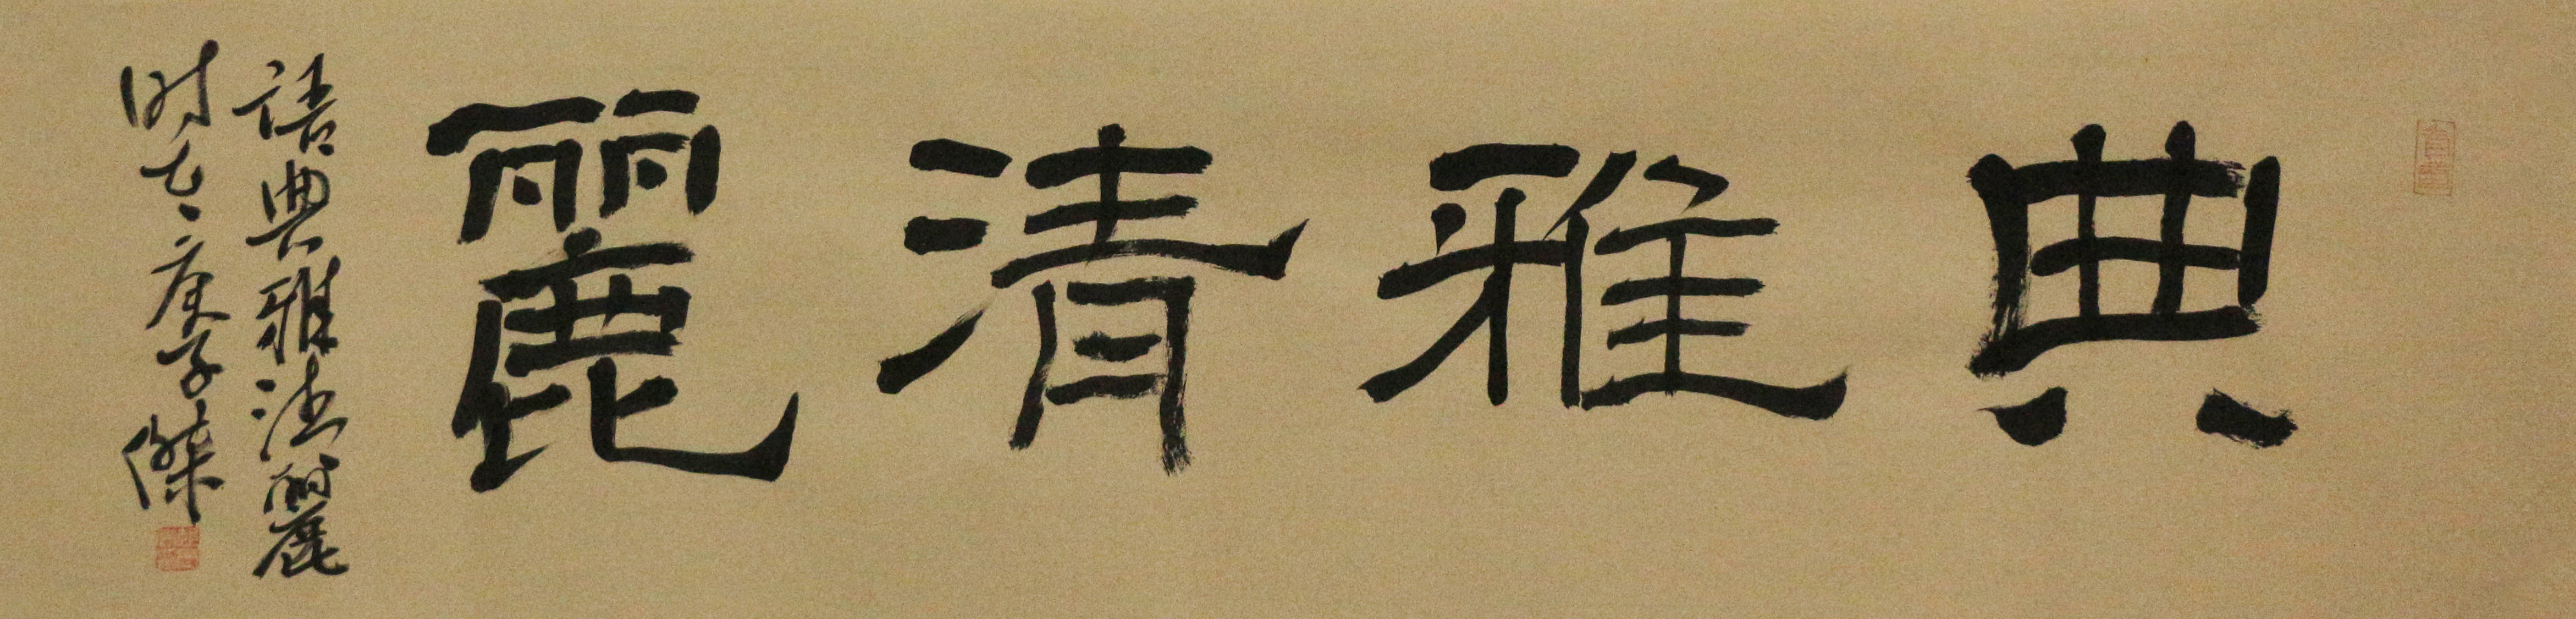 典雅清麗
語典雅清麗
時在庚子傑